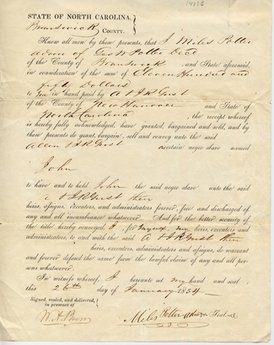 14776
STATE OF NORTH CAROLINA,
Brunswick COUNTY.
Know all men by these presents, that I Miles Potter
admr of Potter Decd
of the County of Brunswick and State aforesaid,
in consideration of the sum of Eleven Hundred and
fifty Dollars
to in hand paid by A & J R Grist
of the County of New Hanover and State of
North Carolina, the receipt whereof
is hereby fully acknowledged, have granted, bargained and sold, and by
these presents do grant, bargain, sell and convey unto the said
Allen & J R Grist a certain negro slave named
John
to have and to hold John the said negro slave unto the said
A & J R Grist their
heirs, assigns, executors, and administrators forever, free and discharged of
any and all incumbrance whatever. And for the better security of
the title hereby conveyed, I for my heirs, executors and
administrators, to and with the said A & J R Grist their
heirs, executors, administrators and assigns, do warrant
and forever defend the same from the lawful claims of any and all per-
sons whatsoever.
In witness whereof, I hereunto set my hand and seal
this 26th day of January 1854.
Signed, sealed, and delivered,
in presence of
Miles Potter Seal